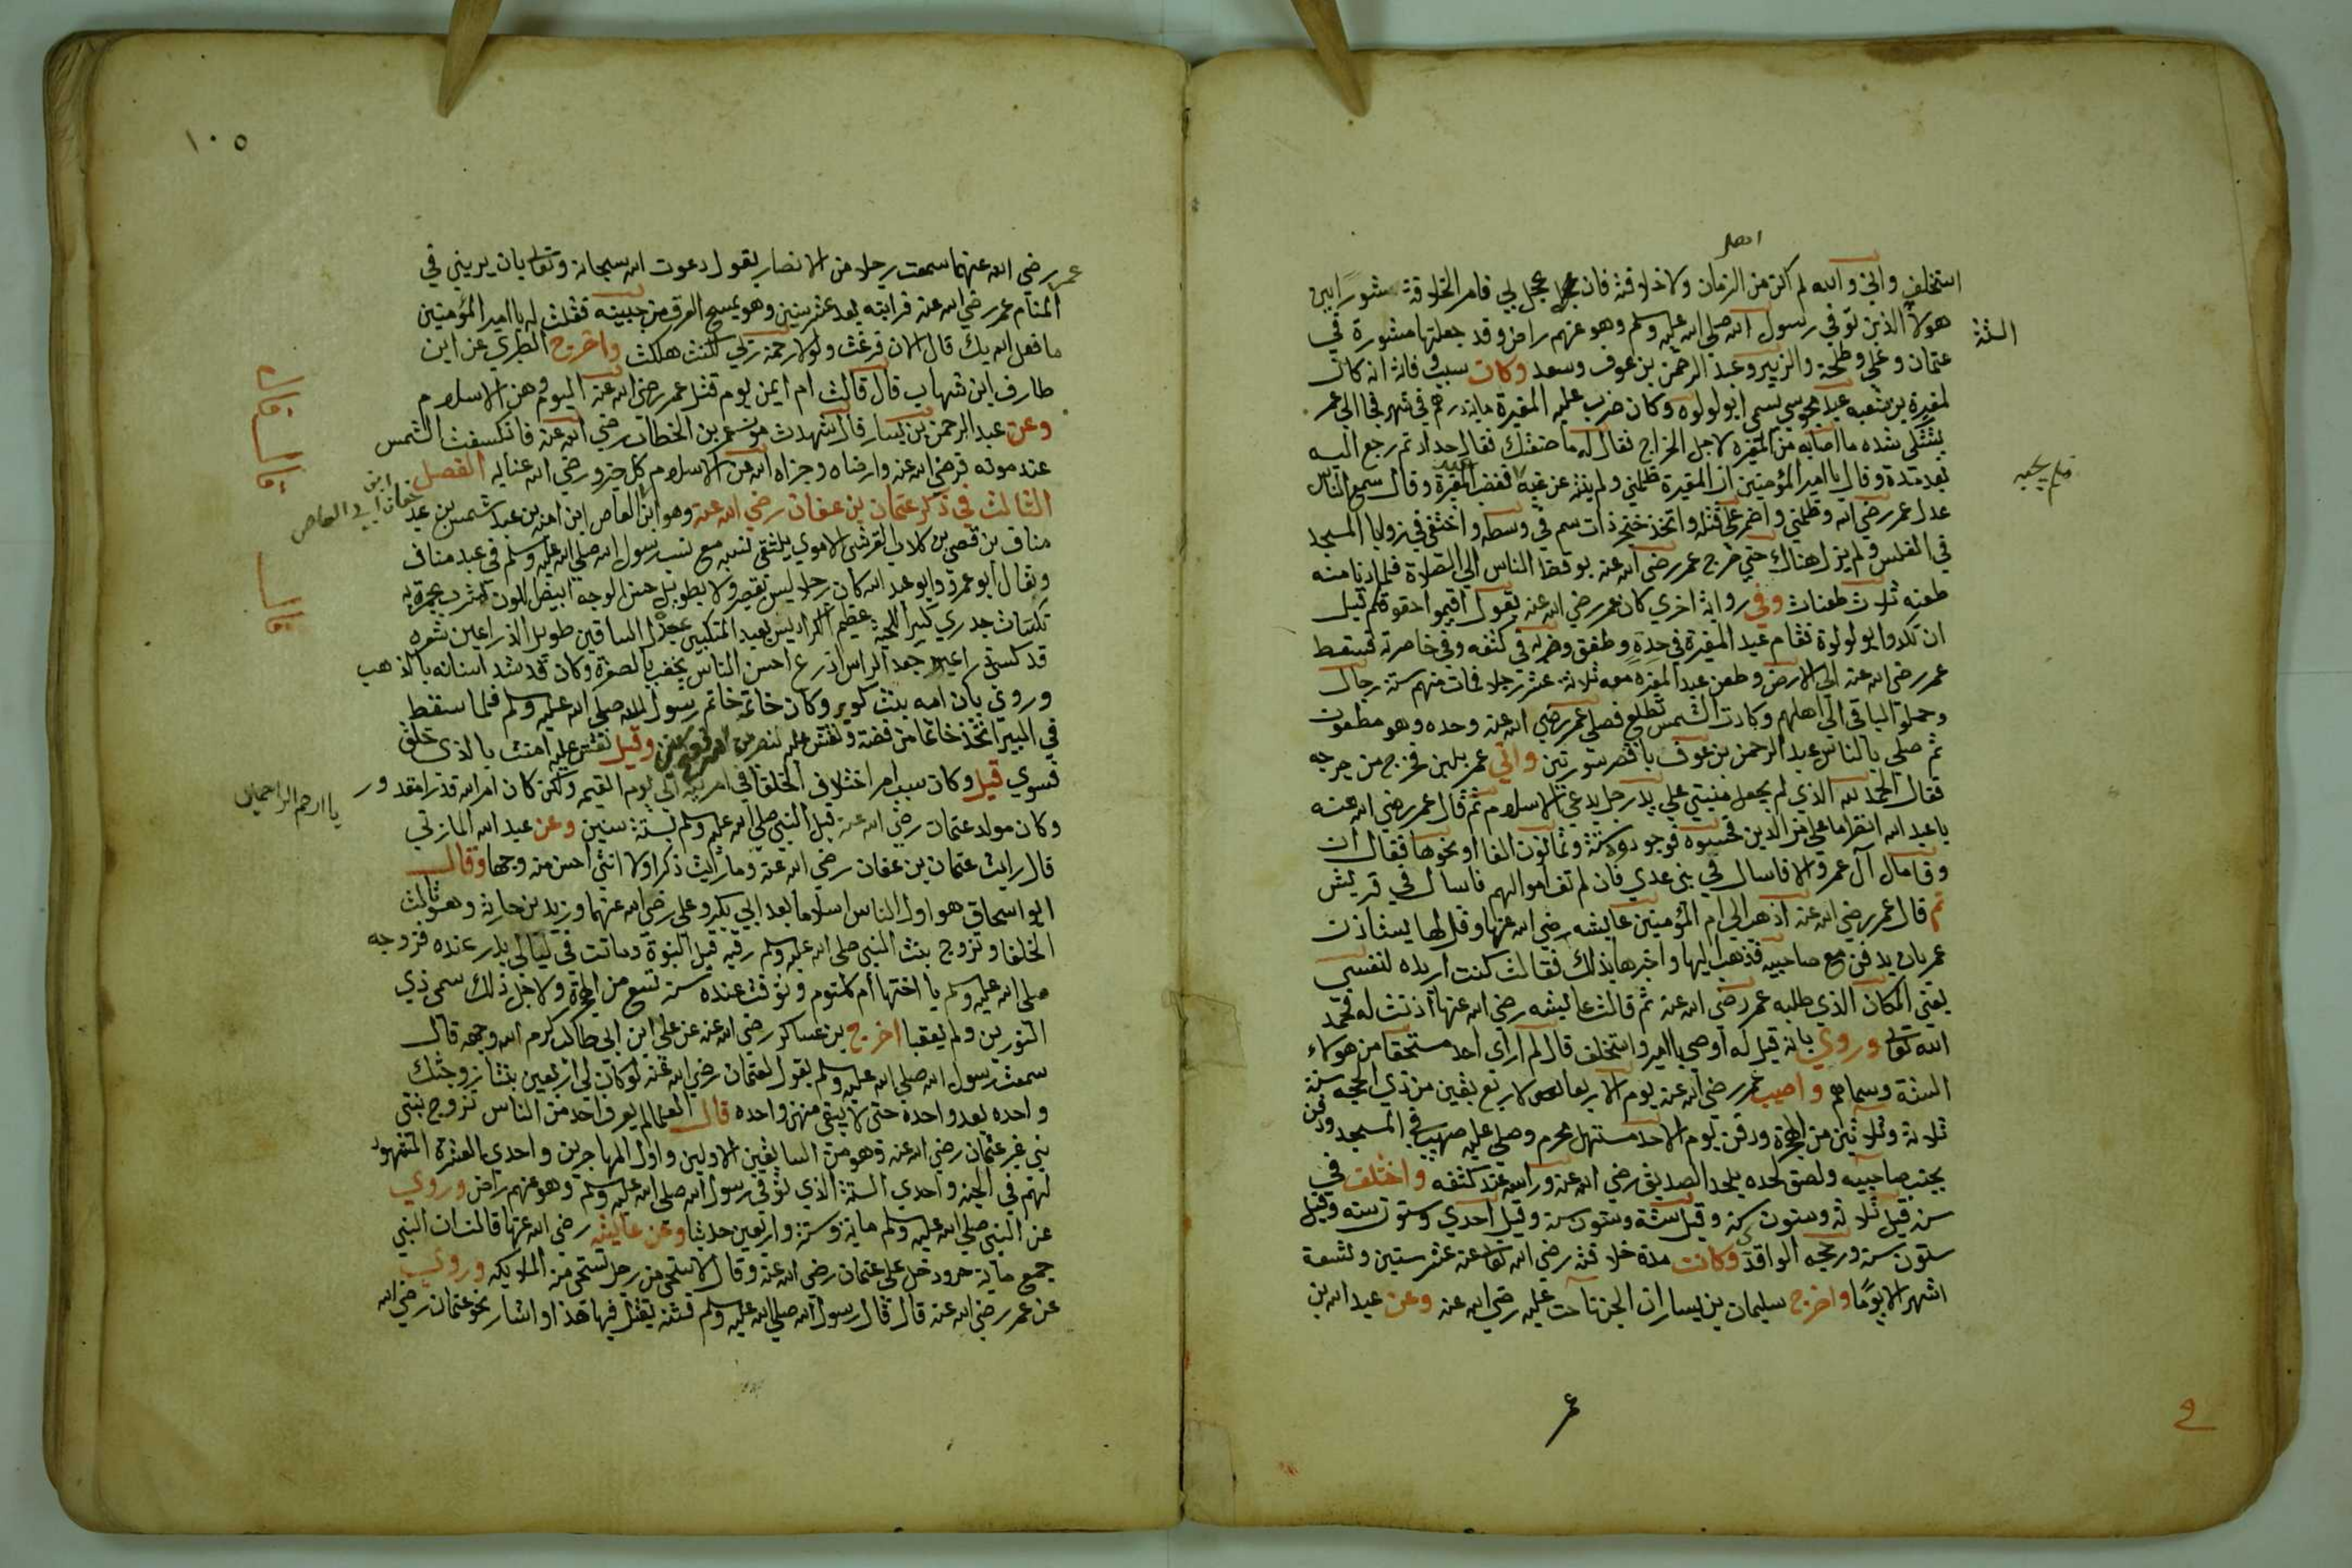 اهل
استخلف واني والله لم اكن من الزمان ولا خلافة فان عجل بي فامر الخلافة شورا بين
هولا الذين توفي رسول الله صلي الله عليه وسلم وهو عنهم راض وقد جعلتها مشورة في
الستة
عثمان وعلي وطلحة والزبير وعبد الرحمن بن عوف وسعد وكان سبب فانه انه كان
لمغيرة بن شعبه عبد مجوسي يسمي ابو لولوه وكان ضرب عليه المغيرة ماية درهم في شهر فجا الي عمر
يشتكي شده ما اصابه من المغيره لاجل الخراج فقال له ما صنعتك فقال حداد ثم رجع اليه
فلم يجبه
بعد مدة وقال يا امير المؤمنين ان المغيرة ظلمني ولم ينته عن غيه فغضب عبد المغيرة وقال سمع الناس
عدل عمر رضي الله وظلمني واضمر علي قتله واتخذ خنجر ذات سم في وسطه واختفي في زوايا المسجد
في الغلس ولم يزل هناك حتي خرج عمر رضي الله عنه يوقظ الناس الي الصلاة فلما دنا منه
طعنه ثلاث طعنات وفي رواية اخري كان عمر رضي الله عنه يقول اقيموا صفوفكم قبل
ان تكدوا ابو لولوة فقام عبد المغيرة في حده وطفق وضربه في كتفه وفي خاصرته فسقط
عمر رضي الله عنه الي الارض وطعن عبد المغيره معه ثلاثة عشر رجلا فمات منهم ستة رجال
وحملوا الباقي الي اهلهم وكادت الشمس تطلع فصلي عمر رضي الله عنه وحده وهو مطعون
ثم صلي بالناس عبد الرحمن بن عوف باقصر سورتين واتي عمر بلبن فخرج من جرحه
فقال الحمد لله الذي لم يجعل منيتي علي يد رجل يدعي الاسلام ثم قال عمر رضي الله عنه
يا عبد الله انظر ما علي من الدين فحسبوه فوجدوه ستة وثمانون الفا او نحوها فقال ان
وفا مال آل عمر والا فاسال في بني عدي فان لم تف اموالهم فاسال في قريش
ثم قال عمر رضي الله عنه اذهب الي ام المؤمنين عايشه رضي الله عنها وقل لها يستاذن
عمر بان يدفن مع صاحبيه فذهب اليها واخبرها بذلك فقالت كنت اريده لنفسي
يعني المكان الذي طلبه عمر رضي الله عنه ثم قالت عايشه رضي الله عنها اذنت له فحمد
الله تعالي وروي بانه قيل له اوصي يا امير واستخلف قال لم آراي احد مستحقا من هولاء
الستة وسماهم واصيب عمر رضي الله عنه يوم الاربعا لاربع بقين من ذي الحجه سنة
ثلاثة وثلاثين من الهجرة ودفن يوم الاحد مستهل محرم وصلي عليه صهيب في المسجد ودفن
بجنب صاحبيه ولصق لحده بلحد الصديق رضي الله عنه وراسه عند كتفه واختلف في
سنه قيل ثلاثة وستون سنة وقيل ستة وستون سنة وقيل احدي وستون سنه وقيل
ستون سنة ورجحه الواقدي وكانت مدة خلافته رضي الله تعالي عنه عشر سنين وتسعة
اشهر الا يوما واخرج سليمان بن يسار ان الجن ناحت عليه رضي الله عنه وعن عبد الله بن
عمر
١٠٥
عمر رضي الله عنهما سمعت رجلا من الانصار يقول دعوت الله سبحانه وتعالي بان يريني في
المنام عمر رضي الله عنه فرايته بعد عشر سنين وهو يمسح العرق من جبينه فقلت له يا امير المؤمنين
ما فعل الله بك قال الان فرغت ولولا رحمة ربي لكنت هلكت واخرج الطبري عن ابن
طارف ابن شهاب قال قالت ام ايمن يوم قتل عمر رضي الله عنه اليوم وهن الاسلام
وعن عبد الرحمن بن يسار قال شهدت موت عمر بن الخطاب رضي الله عنه فانكسفت الشمس
عند موته فرضي الله عنه وارضاه وجزاه الله عن الاسلام كل خير ورضي الله عنا به الفصل
الثالث في ذكر عثمان بن عفان رضي الله عنه وهو ابن العاص ابن اميه بن عبد شمس بن عبد
ابن عفان ابي العاص
مناف بن قصي بن كلاب القرشي الاموي يلتقي نسبه مع نسب رسول الله صلي الله عليه وسلم في عبد مناف
ويقال ابو عمرو وابو عبد الله كان رجلا ليس بقصير ولا بطويل حسن الوجه ابيض اللون مشرب بحمرة به
نكتات جدري كثير اللحية عظيم الكراديس بعيد المنكبين جدل الساقين طويل الذراعين شعره
قد كسي ذراعيه جعد الراس اذرع احسن الناس يخضب بالصفرة وكان قد شد اسنانه بالذهب
وروي بان امه بنت كويز وكان خاتمه خاتم رسول الله صلي الله عليه وسلم فلما سقط
في البير اتخذ خاتما من فضة ونقش عليه وقيل نقش عليه امنت بالذي خلق
فسوي قيل وكان سبب امر اختلاف الخلفا في امر الي يوم القيمه ولكن كان امر الله قدرا مقدور
يا ارحم الراحمين
وكان مولد عثمان رضي الله عنه قبل النبي صلي الله عليه وسلم بستة سنين وعن عبد الله المازني
قال رايت عثمان بن عفان رضي الله عنه وما رايت ذكرا ولا انثي احسن منه وجها وقال
ابو اسحاق هو اول الناس اسلاما بعد ابي بكر وعلي رضي الله عنهما وزيد بن حارثه وهو ثالث
الخلفا وتزوج بنت النبي صلي الله عليه وسلم رقيه قبل النبوة وماتت في ليالي بدر عنده فزوجه
صلي الله عليه وسلم با اختها ام كلثوم وتوفت عنده سنة تسع من الهجرة ولاجل ذلك سمي ذي
النورين ولم يعقبا اخرج بن عساكر رضي الله عنه عن علي ابن ابي طالب كرم الله وجهه قال
سمعت رسول الله صلي الله عليه وسلم يقول لعثمان رضي الله عنه لو كان لي اربعين بنتا زوجتك
واحده بعد واحدة حتي لا يبقي منهن واحده قال العلما لم يعرف احد من الناس تزوج بنتي
نبي غير عثمان رضي الله عنه وهو من السابقين الاولين واول المهاجرين واحدي العشرة المشهود
لهم في الجنه واحدي الستة الذي توفي رسول الله صلي الله عليه وسلم وهو عنهم راض وروي
عن النبي صلي الله عليه وسلم ماية وستة واربعين حديثا وعن عايشه رضي الله عنها قالت ان النبي
جمع ثيابه حين دخل علي عثمان رضي الله عنه وقال الا نستحي من رجل تستحي منه الملايكه وروي
عن عمر رضي الله عنه قال قال رسول الله صلي الله عليه وسلم فتنه يقتل فيها هذا واشار نحو عثمان رضي الله